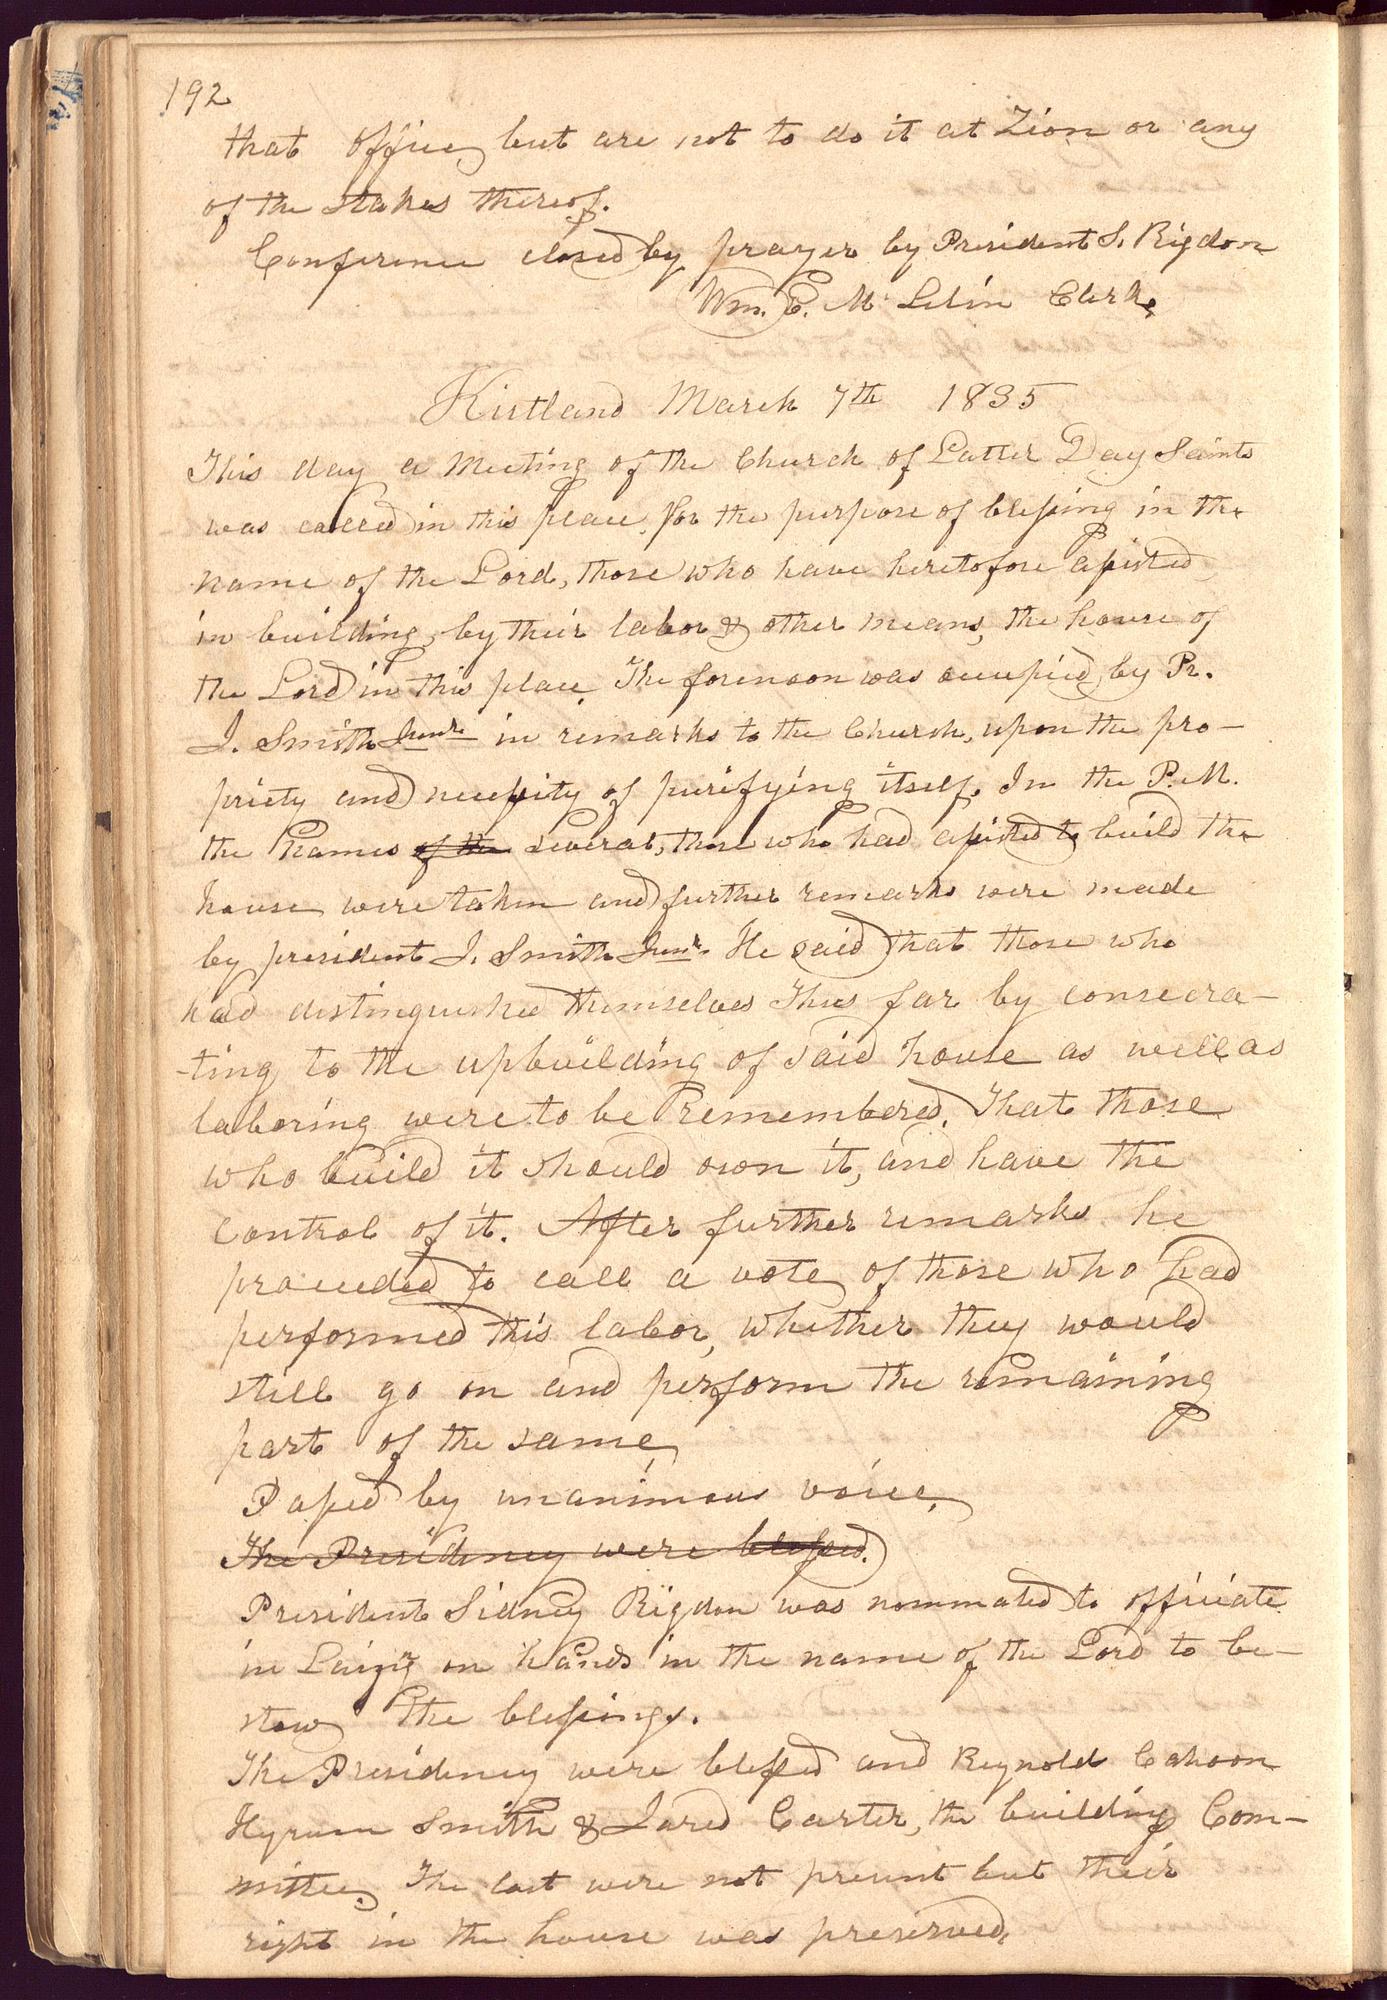 192
that office, but are not to do it at Zion or any
of the stakes thereof.
Conference closed by prayer by President S. Rigdon
Wm. E. Mc Lelin Clerk,
Kirtland March 7th 1835
This day a meeting of the Church of Latter Day Saints
was called in this place, for the purpose of blessing in the
name of the Lord, those who have heretofore assisted,
in building, by their labor & other means, the house of
the Lord in this place. The forenoon was occupied, by Pr.
J. Smith Junr in remarks to the Church, upon the pro-
priety and necessity of purifying itself. In the P.M.
the names of the several, those who had assisted to build the
house were taken and further remarks were made
by president J. Smith Junr. He said that those who
had distinguished themselves thus far by consecra-
-ting to the upbuilding of said house as well as
laboring were to be remembered. That those
who build it should own it, and have the
control of it. After further remarks he
proceeded to call a vote, of those who had
performed this labor, whether they would
still go on and perform the remaining
part of the same,
Passed by unanimous voice,
The Presidency were blessed.
President Sidney Rigdon was nommated to officiate
in Laizig on hands in the name of the Lord to be-
stow the blessings.
The Presidency were blessed and Reynold Cahoon
Hyrum Smith & Jared Carter, the building Com-
mittee, The last were not present but their
right in the house was preserved,